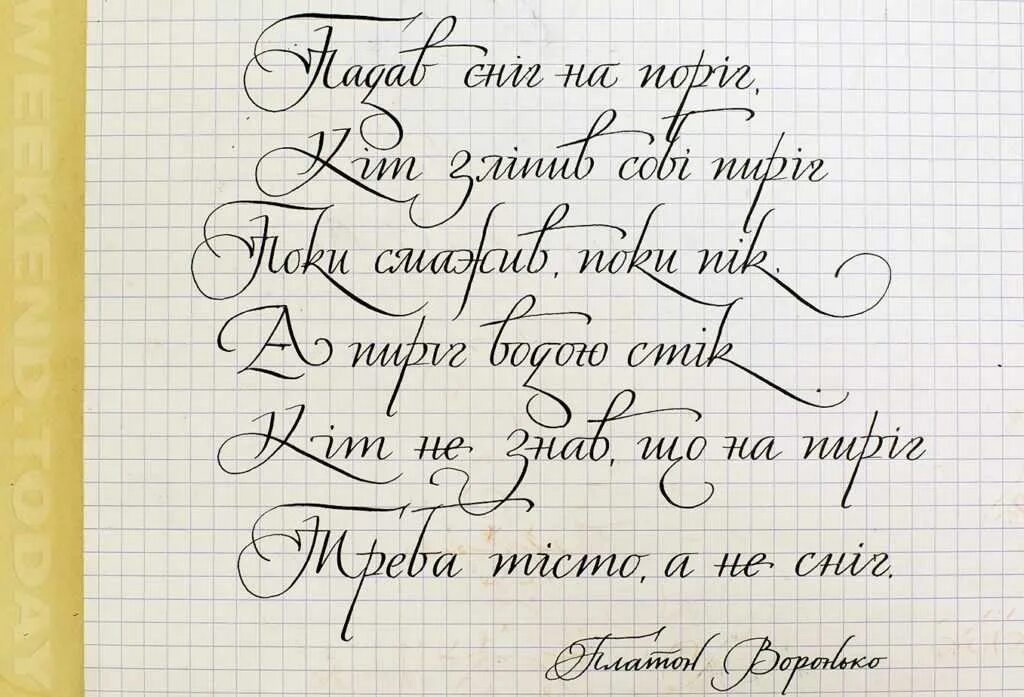 WEEKENDTODAY
Падав сніг на поріг,
Кіт зліпив собі пиріг
Поки смажив, поки пік.
А пиріг водою стік.
Кіт не знав, що на пиріг
Треба тісто, а не сніг.
Платон Воронько